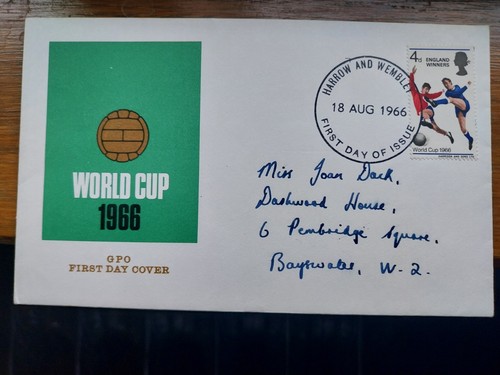 WORLD CUP
1966
GPO
FIRST DAY COVER
HARROW AND WEMBLEY
18 AUG 1966
FIRST DAY OF ISSUE
4d ENGLAND
WINNERS
World Cup 1966
HARRISON AND SONS LTD
Miss Joan Dack,
Dashwood House,
6 Pembridge Square,
Bayswater, W-2.